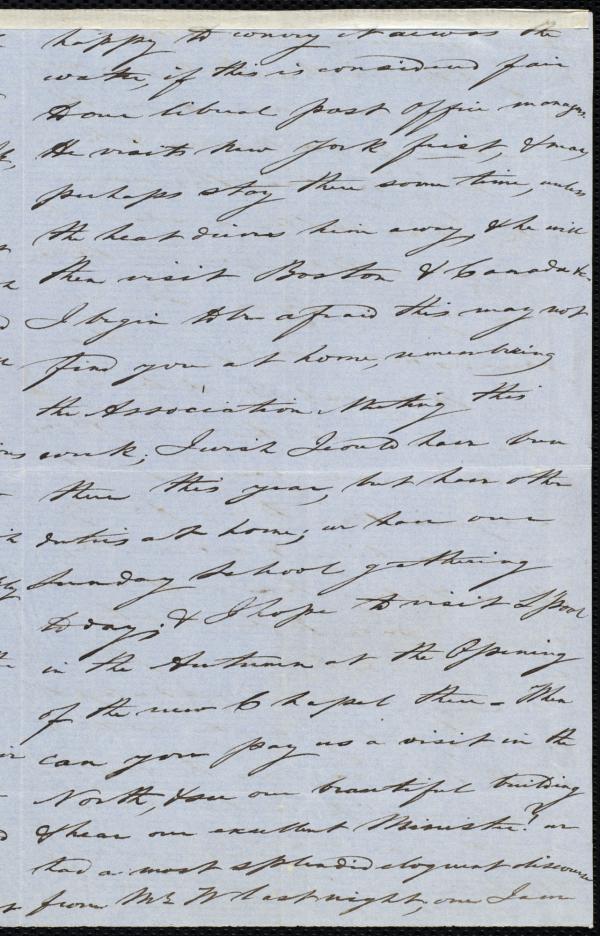 happy to convey it across the
water, if this is considered fair
to our liberal post office manage
He visits New York first, & may
perhaps stay there some time, unless
the heat drives him away, & he will
then visit Boston & Canada &c.
I begin to be afraid this may not
find you at home, remembering
the Association Meeting this
week; I wish I could have been
there this year, but have other
duties at home; we have our
Sunday School gathering
to day; & I hope to visit Lpool
in the Autumn at the Opening
of the new Chapel there - When
can you pay us a visit in the
North, & see our beautiful building
& hear our excellent Minister? we
had a most splendid eloquent discourse
from Mr W last night, one I am